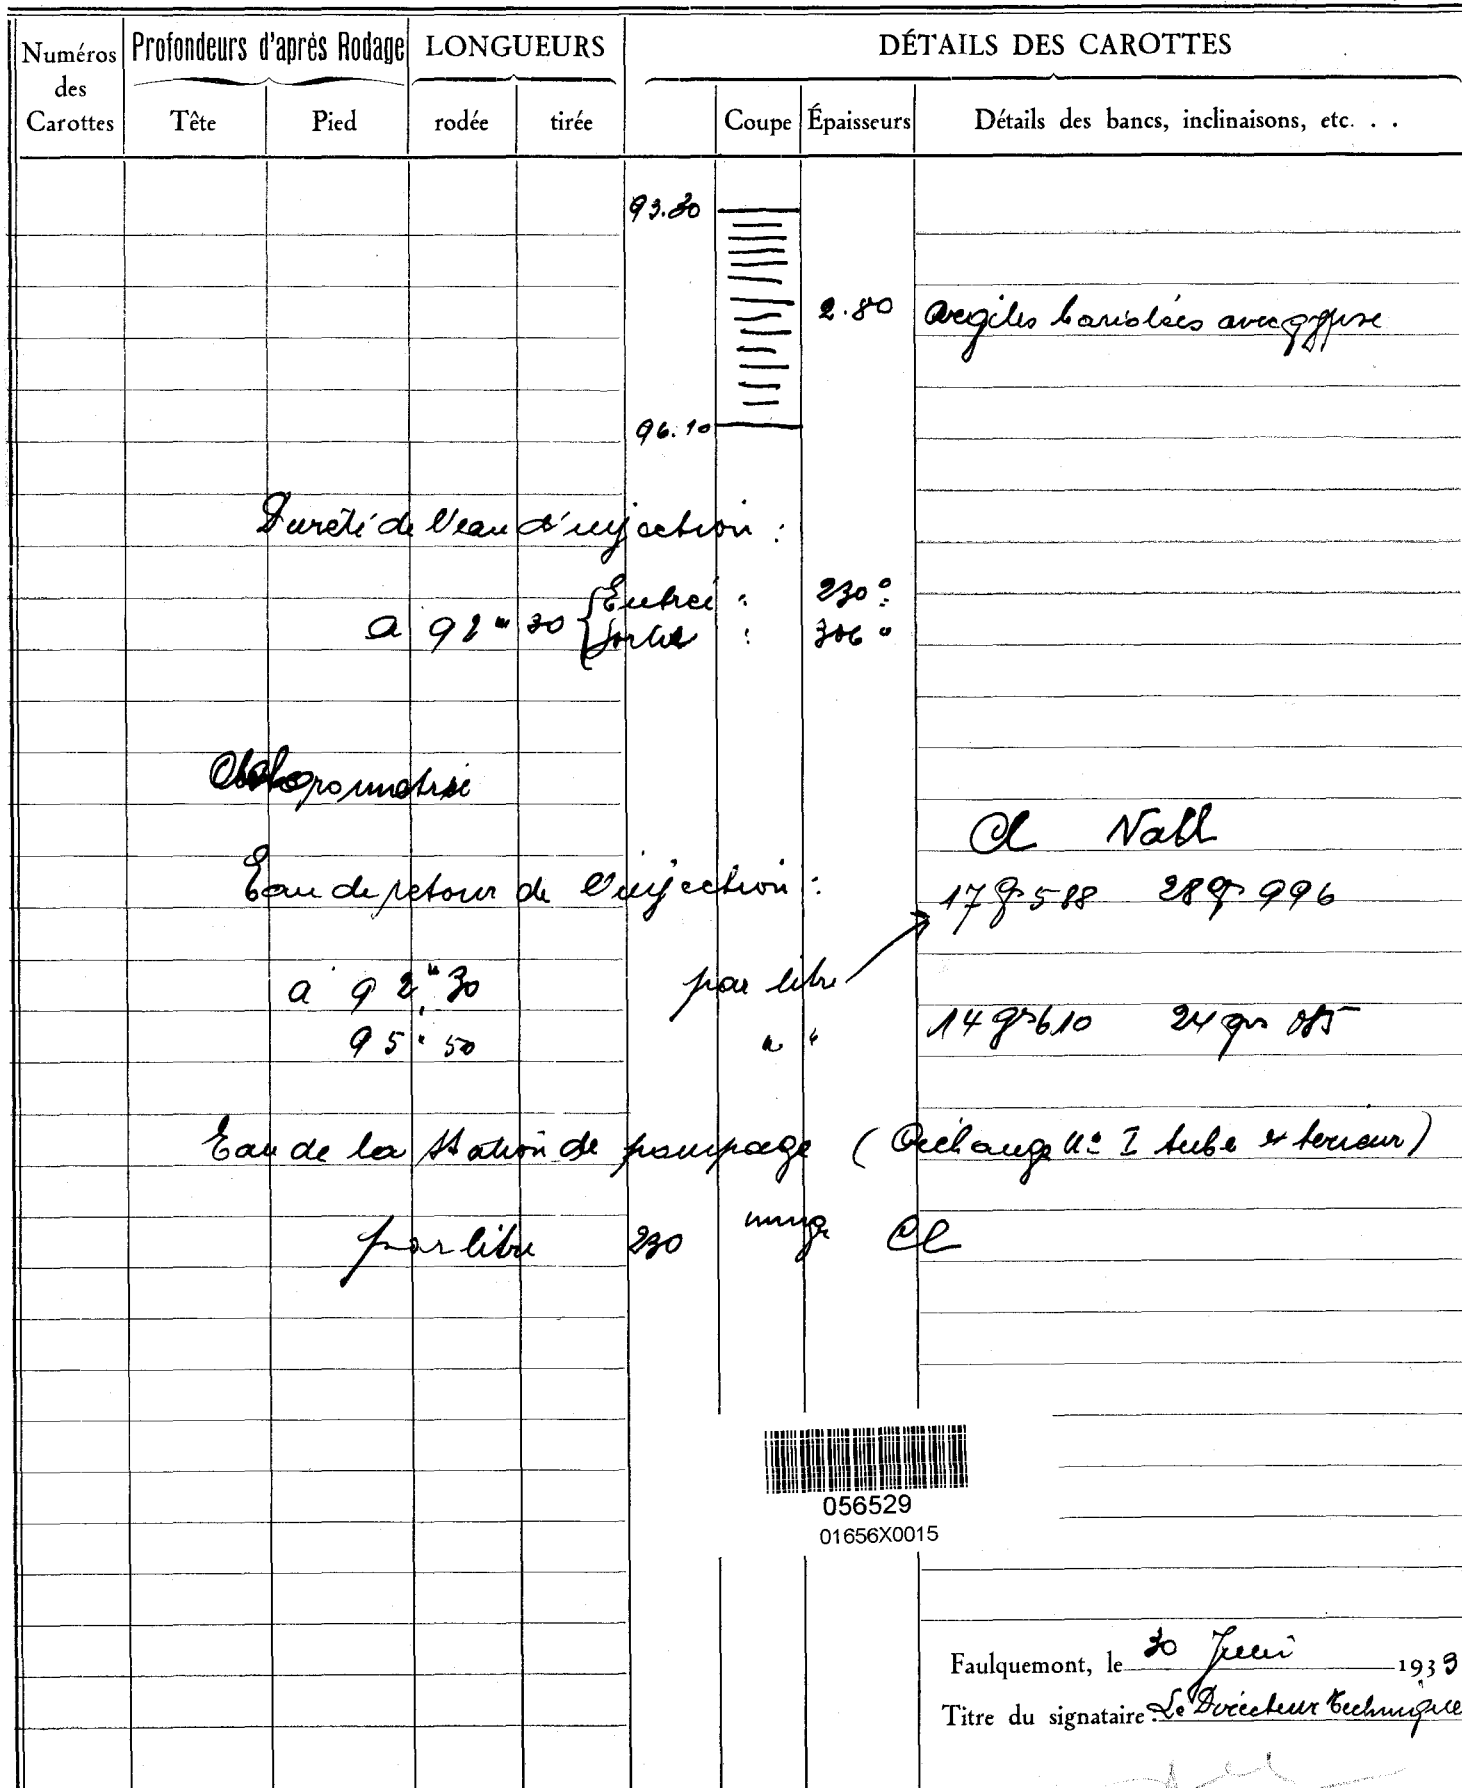 Numéros des Carottes
Profondeurs d'après Rodage
LONGUEURS
DÉTAILS DES CAROTTES
Tête Pied rodée tirée Coupe Épaisseurs Détails des bancs, inclinaisons, etc. . .
93.30
2.80 Argiles bariolées avec gypse
96.10
Dureté de l'eau d'injection :
Entrée : 230°
à 92 m 30
Sortie : 306°
Cl NaCl
Eau de retour de l'injection : 17 gr 588 28 gr 996
à 92 m 30 par litre
14 gr 610 24 gr 085
95 m 50 " "
Eau de la station de pompage ( N° I tube extérieur)
par litre 230 mmgr Cl
056529
01656X0015
Faulquemont, le 30 Juin 1939
Titre du signataire : Le Directeur technique